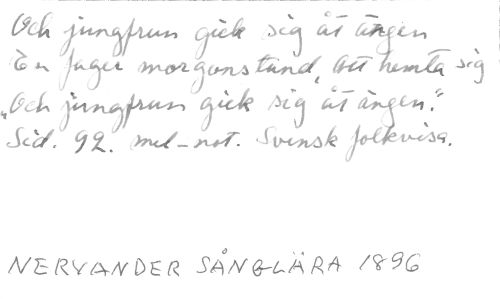 Och jungfrun gick sig åt ängen
En fager morgonstund, Att hemta sig
"Och jungfrun gick sig åt ängen."
Sid. 92. mel-not. Svensk folkvisa.
NERVANDER SÅNGLÄRA 1896